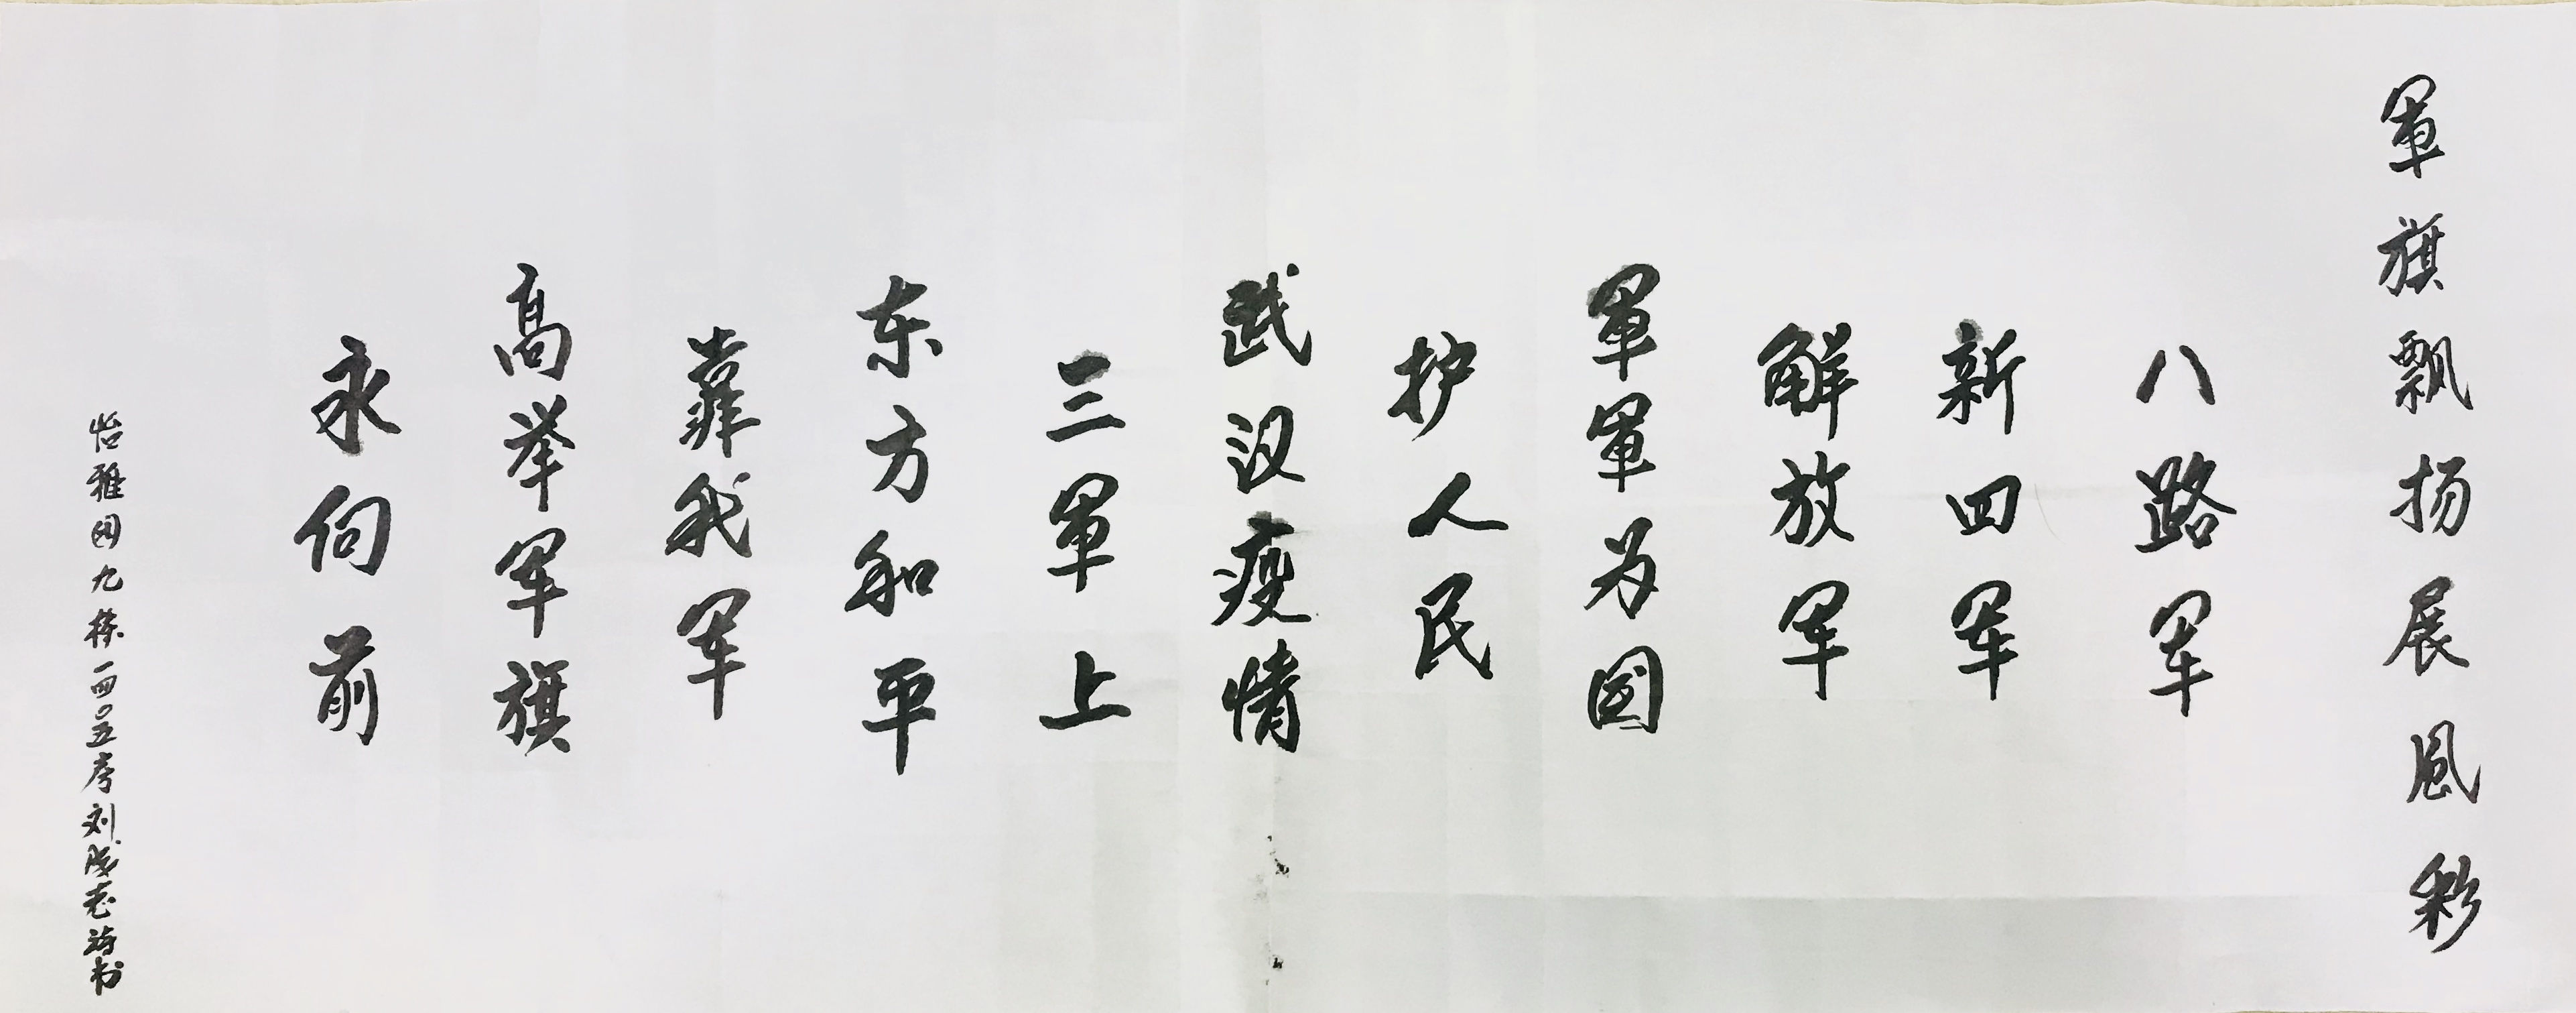 軍旗飘扬展风彩
八路军
新四军
解放军
軍軍为國
护人民
武汉疫情
三軍上
东方和平
靠我军
高举军旗
永向前
怡雅园九栋一四〇五房刘成志诗书